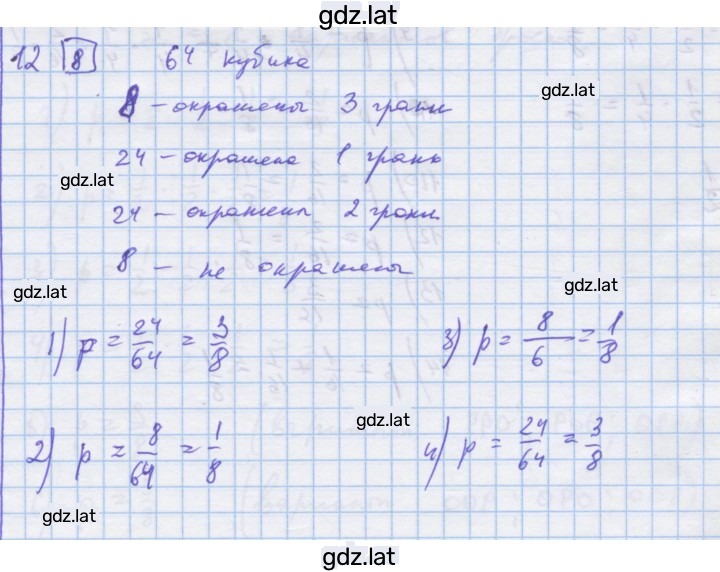 gdz.lat
12 8 64 кубика
gdz.lat
8 – окрашены 3 грани
24 – окрашена 1 грань
gdz.lat
24 – окрашены 2 грани
8 – не окрашены
gdz.lat
gdz.lat
1) p = 24/64 = 3/8
3) p = 8/6 = 1/8
gdz.lat
2) p = 8/64 = 1/8
4) p = 24/64 = 3/8
gdz.lat
gdz.lat